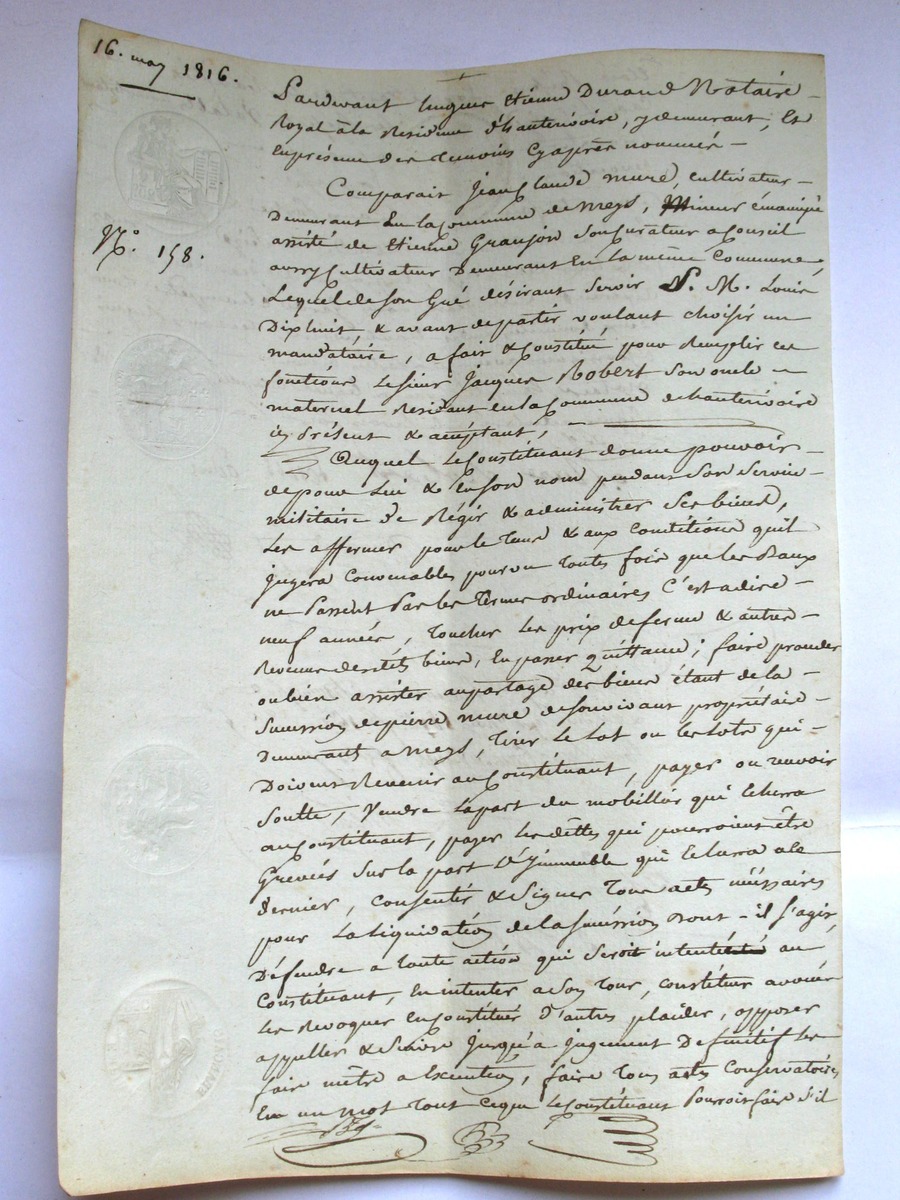 16. may 1816.
N.º 158.
Pardevant hugues Etienne Durand Notaire
Royal à la Residence d'hauterivoire, y demeurant, Et
En présence des temoins Cyaprès nommés
Comparait Jean Claude mure, cultivateur
Demeurant En la Commune de meys, Mineur émancipé
assisté de Etienne Granjon Son Curateur a Conseil
aussy Cultivateur Demeurant En la même Commune
Lequel de Son Gré désirant Servir S. M. Louis
Dixhuit & avant de partir voulant choisir un
mandataire, a fait & Constitué pour Remplir ces
fonctions Le Sieur Jacques Robert Son oncle
maternel Residant en la Commune d'hauterivoire
icy Présent & acceptant,
Auquel Le Constituant donne pouvoir
de pour Lui & En Son nom pendant Son Service
militaire de Régir & administrer Ses biens,
Les affermer pour le Tems & aux Conditions quil
jugera Convenables pourvu Toutes fois que les Baux
ne Passent Pas les Termes ordinaires C'est adire
neuf années, Toucher Les prix de ferme & autres
Revenus desdits biens, En passer quittance ; faire proceder
ou bien assister au partage des biens étant de la
Succession de pierre mure de Son vivant propriétaire
Demeurant a meys, Tirer Le Lot ou les Lots qui
Doivent Revenir au Constituant, payer ou recevoir
Soulte, Vendre La part du mobillier qui Echerra
au Constituant, payer Les dêttes qui pourroient être
Grevées Sur la part D'Immeuble qui Echerra a Ce
dernier, Consentir & Signer Tous actes nécéssaires
pour La Liquidation de la Succéssion dont il S'agit,
Défendre a toute action qui Seroit intenté au
Constituant, En intenter a Son Tour, Constituer avoués
Les Revoquer En Constituer d'autres plaider, opposer
appeller & Suivre Jusqu'a jugement Definitif Les
faire mêtre a Execution, faire Tous actes Conservatoires
En un mot Tout Ceque Le Constituant Pourroit faire S'il